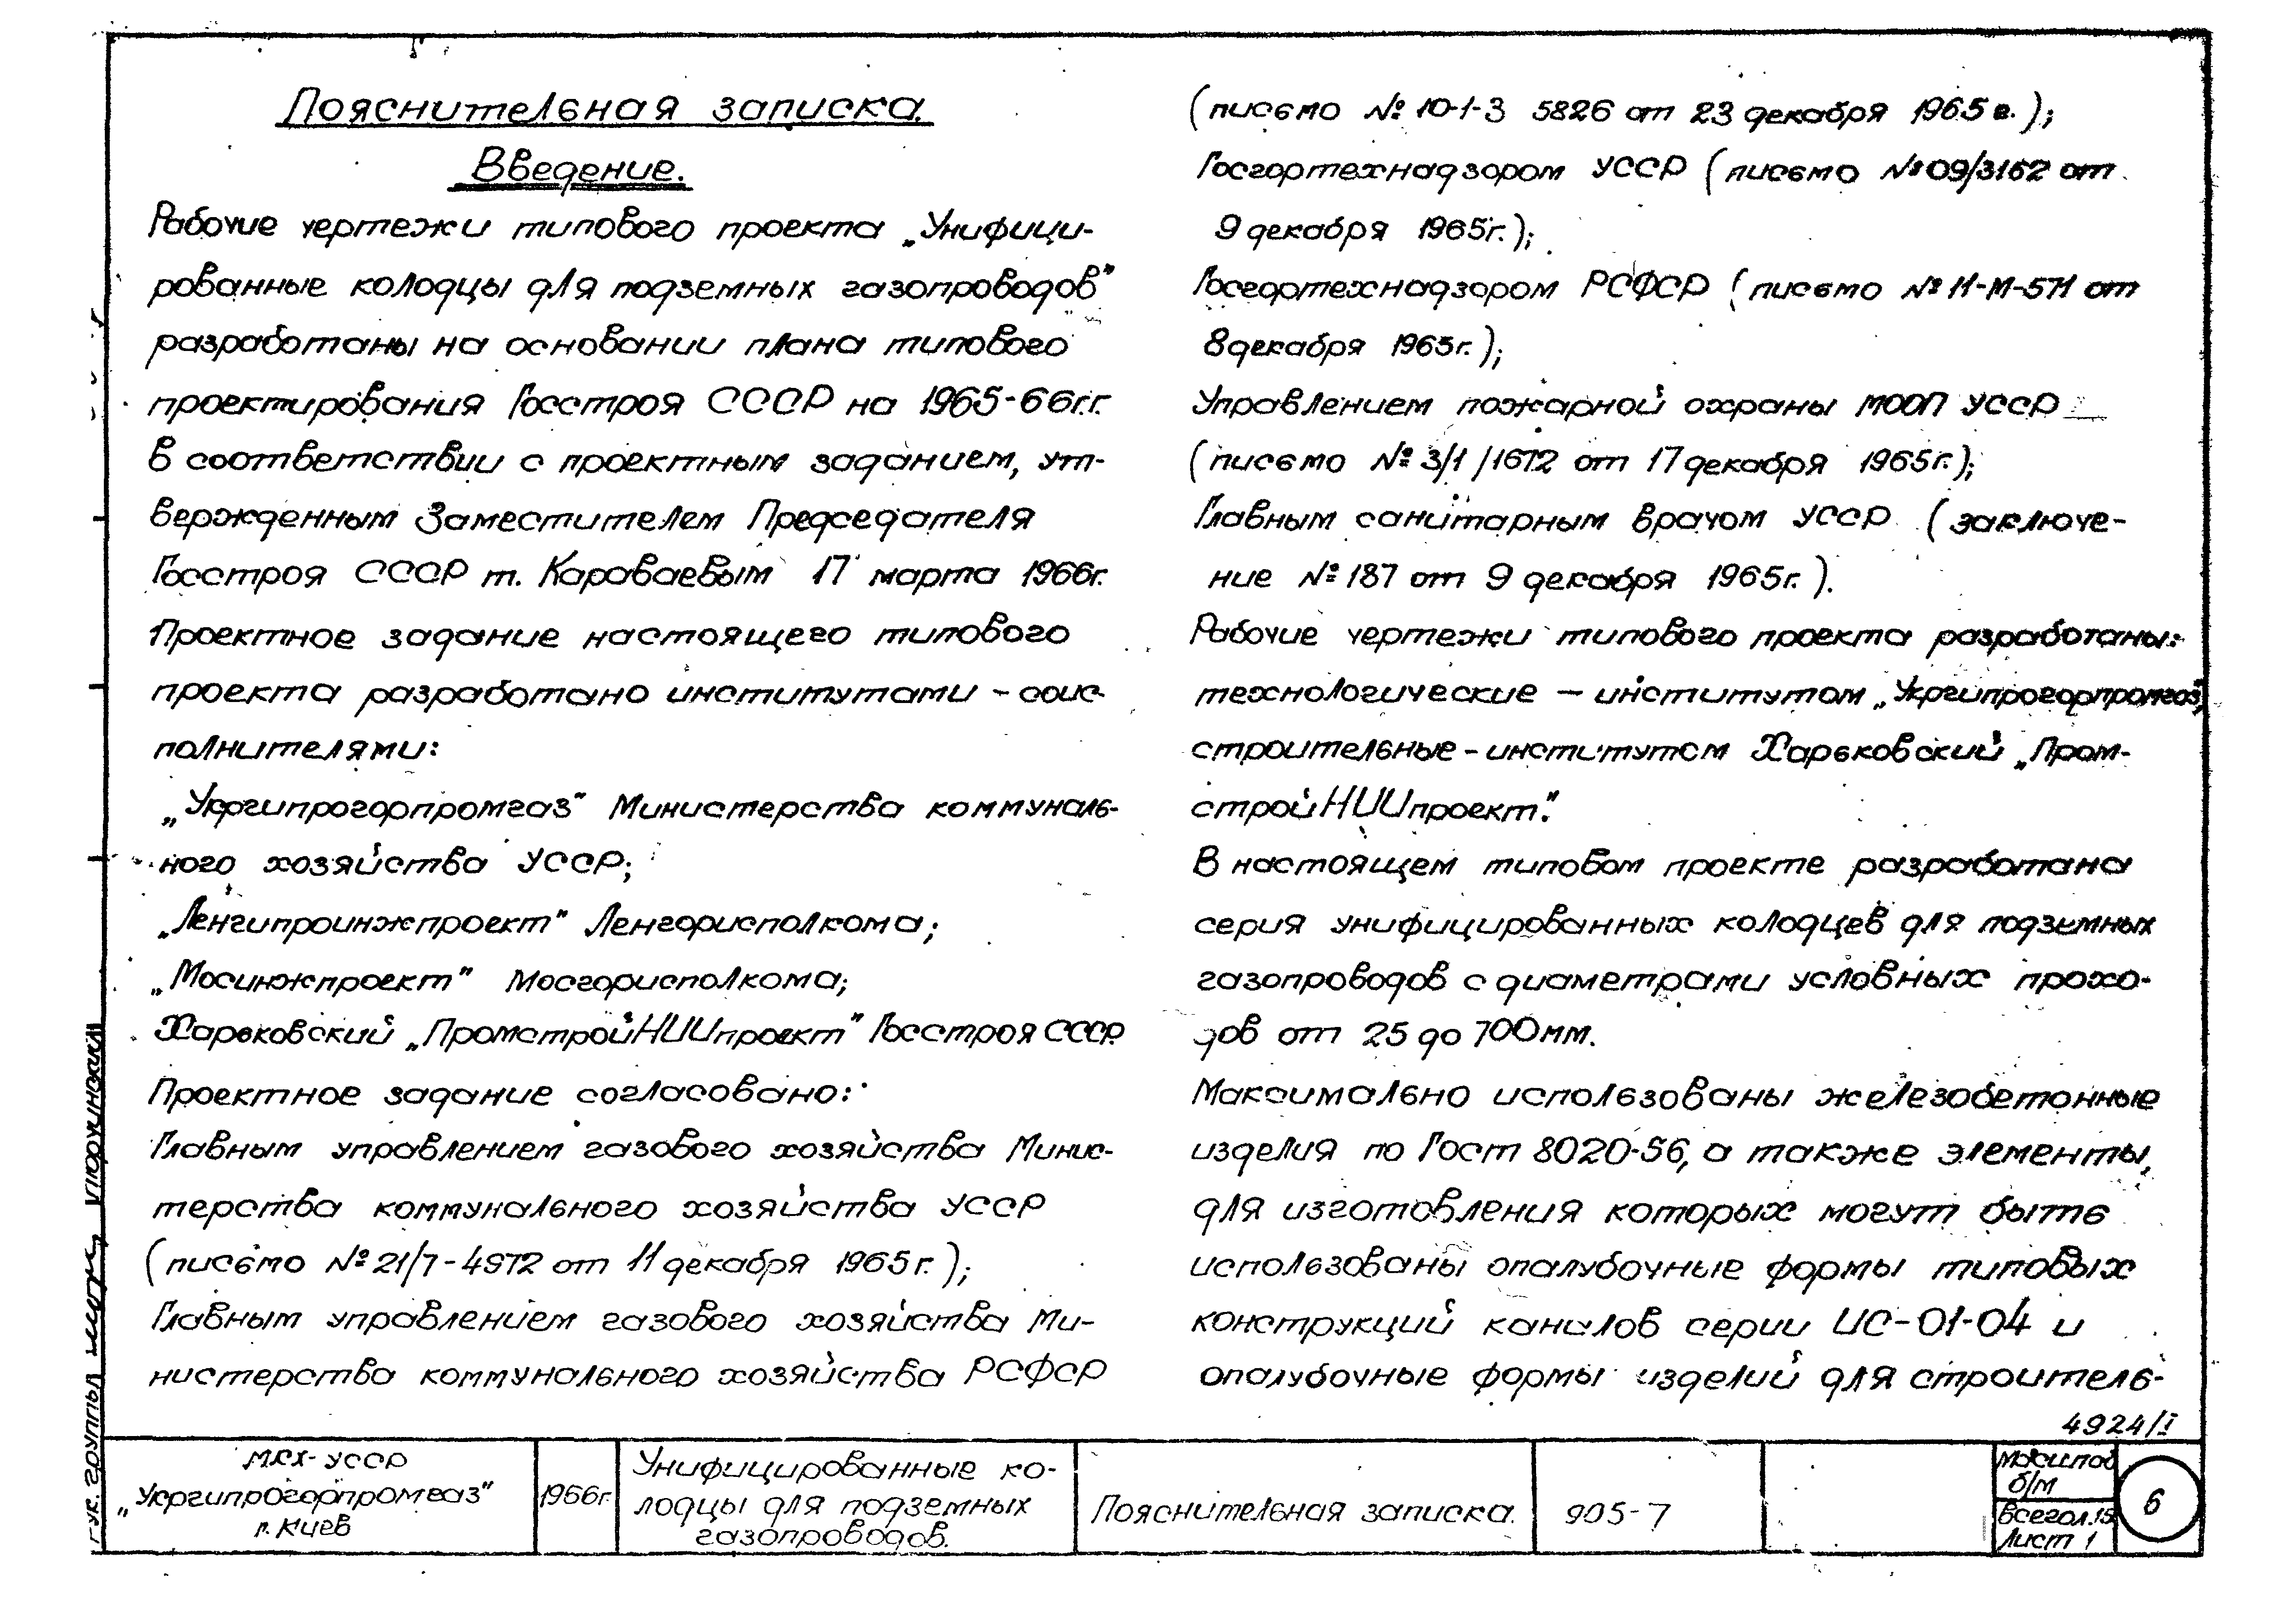 Пояснительная записка.
Введение.
Рабочие чертежи типового проекта „Унифици-
рованные колодцы для подземных газопроводов"
разработаны на основании плана типового
проектирования Госстроя СССР на 1965-66г.г.
в соответствии с проектным заданием, ут-
вержденным Заместителем Председателя
Госстроя СССР т. Караваевым 17 марта 1966г.
Проектное задание настоящего типового
проекта разработано институтами - соис-
полнителями:
„Укргипрогорпромгаз" Министерства коммуналь-
ного хозяйства УССР;
„Ленгипроинжпроект" Ленгорисполкома;
„Мосинжпроект" Мосгорисполкома;
Харьковский „ПромстройНИИпроект" Госстроя СССР.
Проектное задание согласовано:
Главным управлением газового хозяйства Минис-
терства коммунального хозяйства УССР
(письмо № от 11 декабря 1965г.);
Главным управлением газового хозяйства Ми-
нистерства коммунального хозяйства РСФСР
(письмо № 10-1-3 5826 от 23 декабря 1965 г.);
Госгортехнадзором УССР (письмо № 09/3162 от
9 декабря 1965г.);
Госгортехнадзором РСФСР (письмо № 11-М-571 от
8 декабря 1965г.);
Управлением пожарной охраны МООП УССР
(письмо № 3/1/1672 от 17 декабря 1965г.);
Главным санитарным врачом УССР (заключе-
ние № 187 от 9 декабря 1965г.).
Рабочие чертежи типового проекта разработаны:
технологические - институтом „Укргипрогорпромгаз",
строительные - институтом Харьковский „Пром-
стройНИИпроект".
В настоящем типовом проекте разработана
серия унифицированных колодцев для подземных
газопроводов с диаметрами условных прохо-
дов от 25 до 700мм.
Максимально использованы железобетонные
изделия по Гост 8020-56, а также элементы,
для изготовления которых могут быть
использованы опалубочные формы типовых
конструкций каналов серии ИС-01-04 и
опалубочные формы изделий для строитель-
4924/I
МКХ-УССР
„Укргипрогорпромгаз"
г. Киев
1966г.
Унифицированные ко-
лодцы для подземных
газопроводов.
Пояснительная записка.
905-7
б/м
Всего л.15
Лист 1
6
Рук. группы